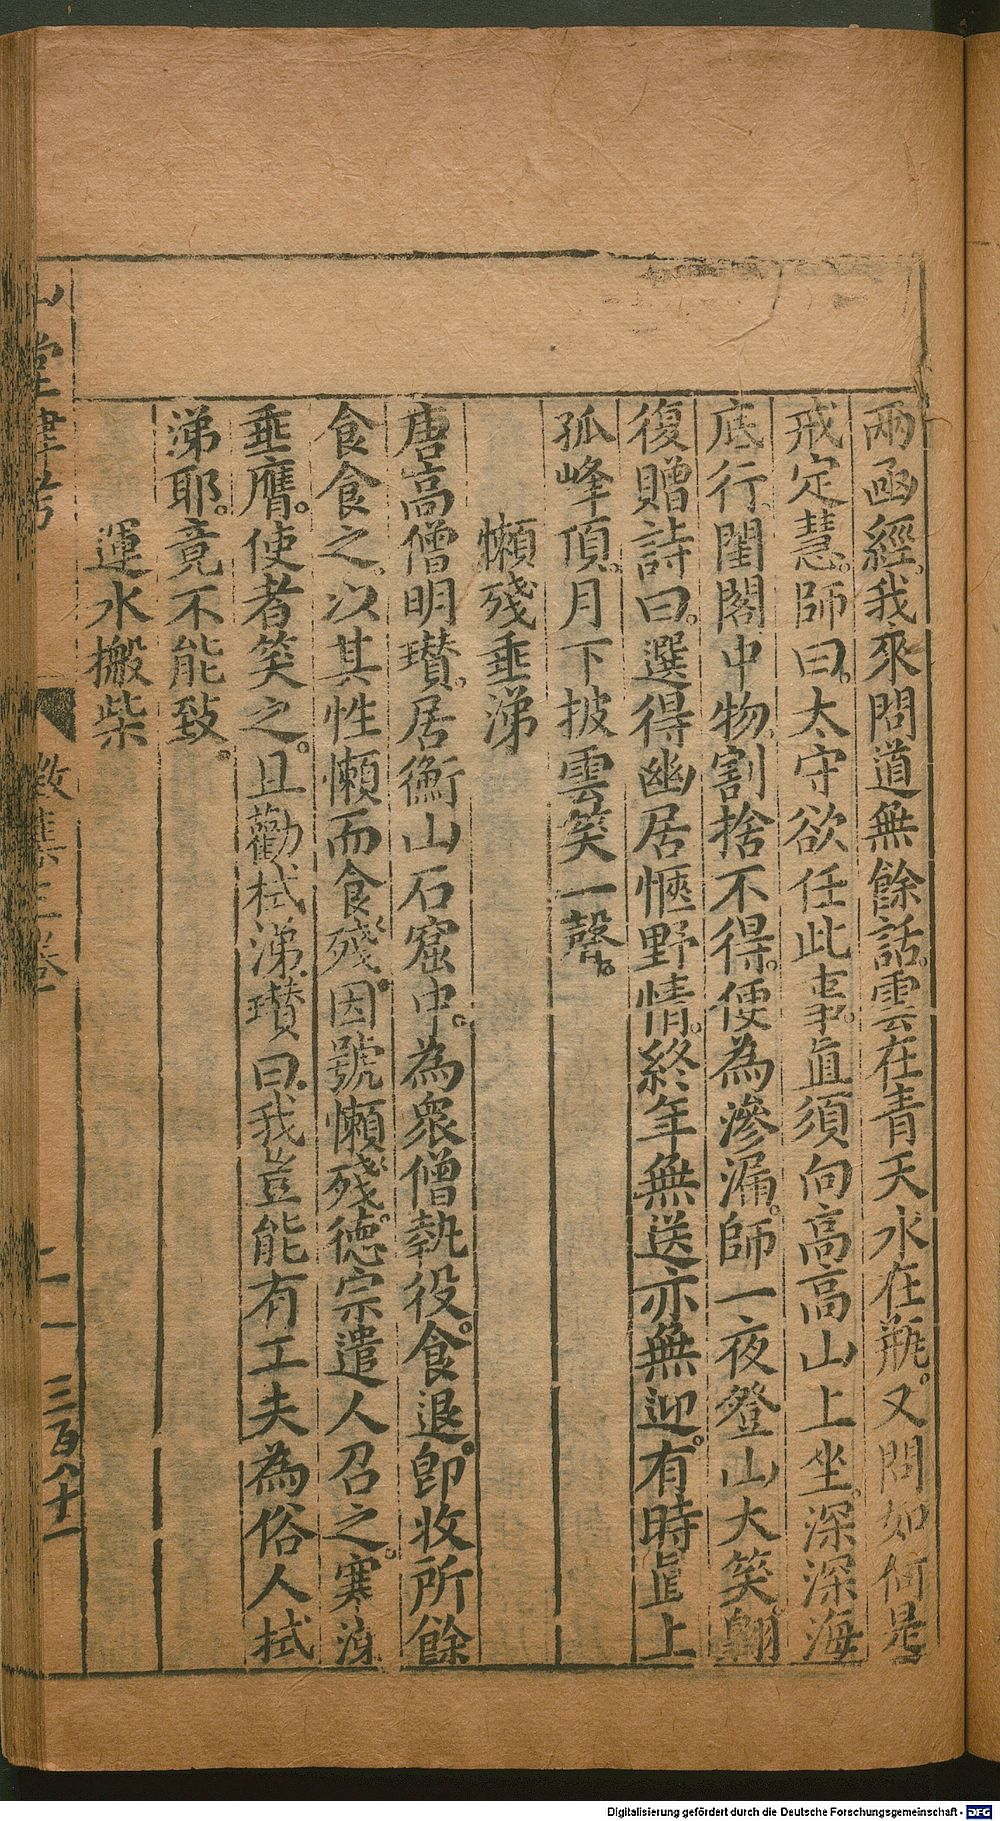 兩函經。我來問道無餘話。雲在青天水在瓶。又問如何是
戒定慧。師曰。太守欲任此事。直須向高高山上坐。深深海
底行。閨閤中物。割捨不得。便為滲漏。師一夜登山大笑。翺
復贈詩曰。選得幽居愜野情。終年無送亦無迎。有時直上
孤峰頂。月下披雲笑一聲。
懶殘垂涕
唐高僧明瓚。居衡山石窟中。為衆僧執役。食退。卽收所餘
食食之。以其性懶而食殘。因號懶殘。德宗遣人召之。寒涕
垂膺。使者笑之。且勸拭涕。瓚曰。我豈能有工夫為俗人拭
涕耶。竟不能致。
運水搬柴
山堂肆考
徵集三卷
二一
三百八十一
Digitalisierung gefördert durch die Deutsche Forschungsgemeinschaft - DFG